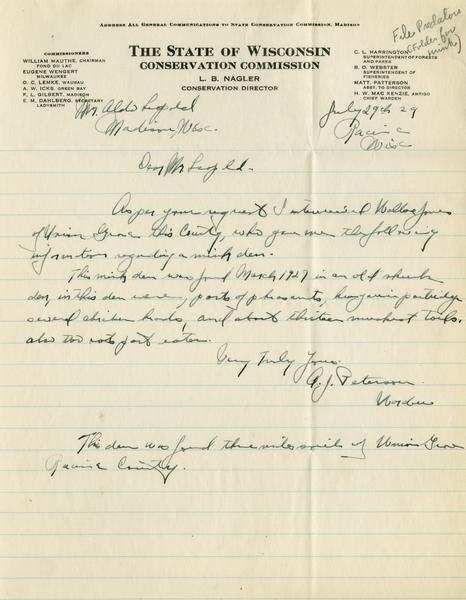 ADDRESS ALL GENERAL COMMUNICATIONS TO STATE CONSERVATION COMMISSION, MADISON
File Predators
(Folder for
mink)
THE STATE OF WISCONSIN
CONSERVATION COMMISSION
L. B. NAGLER
CONSERVATION DIRECTOR
COMMISSIONERS
WILLIAM MAUTHE, CHAIRMAN
FOND DU LAC
EUGENE WENGERT
MILWAUKEE
O. C. LEMKE, WAUSAU
A. W. ICKS, GREEN BAY
F. L. GILBERT, MADISON
E. M. DAHLBERG, SECRETARY
LADYSMITH
C. L. HARRINGTON
SUPERINTENDENT OF FORESTS
AND PARKS
B. O. WEBSTER
SUPERINTENDENT OF
FISHERIES
MATT. PATTERSON
ASST. TO DIRECTOR
H. W. MAC KENZIE, ANTIGO
CHIEF WARDEN
July 29th 29
Racine
Wisc
Mr. Aldo Leopold
Madison, Wisc.
Dear Mr Leopold.
As per your request I interviewed Wallace Jones
of Union Grove this County, who gave me the following
information regarding a mink den.
This mink den was found March 1927 in an old skunk
den, in this den were, parts of pheasants, hungarian partridge
several chicken heads, and about thirteen muskrat tails.
also two rats part eaten.
Very Truly Yours.
A. J. Peterson.
Warden
This den was found three miles south of Union Grove
Racine County.